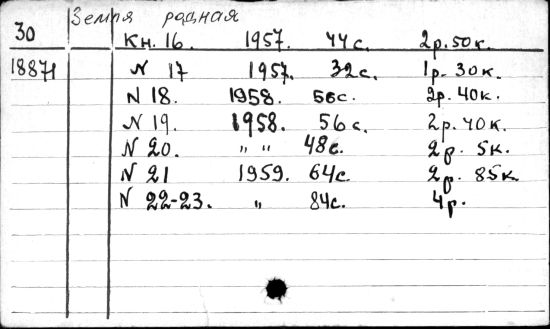 Земля родная
30 Кн. 16. 1957. 44с. 2р. 50к.
18871 N 17 1957. 32с. 1р. 30к.
N 18. 1958. 56с. 2р. 40к.
N 19. 1958. 56с. 2р. 40к.
N 20. " " 48с. 2р. 5к.
N 21 1959. 64с. 2р. 85к.
N 22-23. " 84с. 4р.